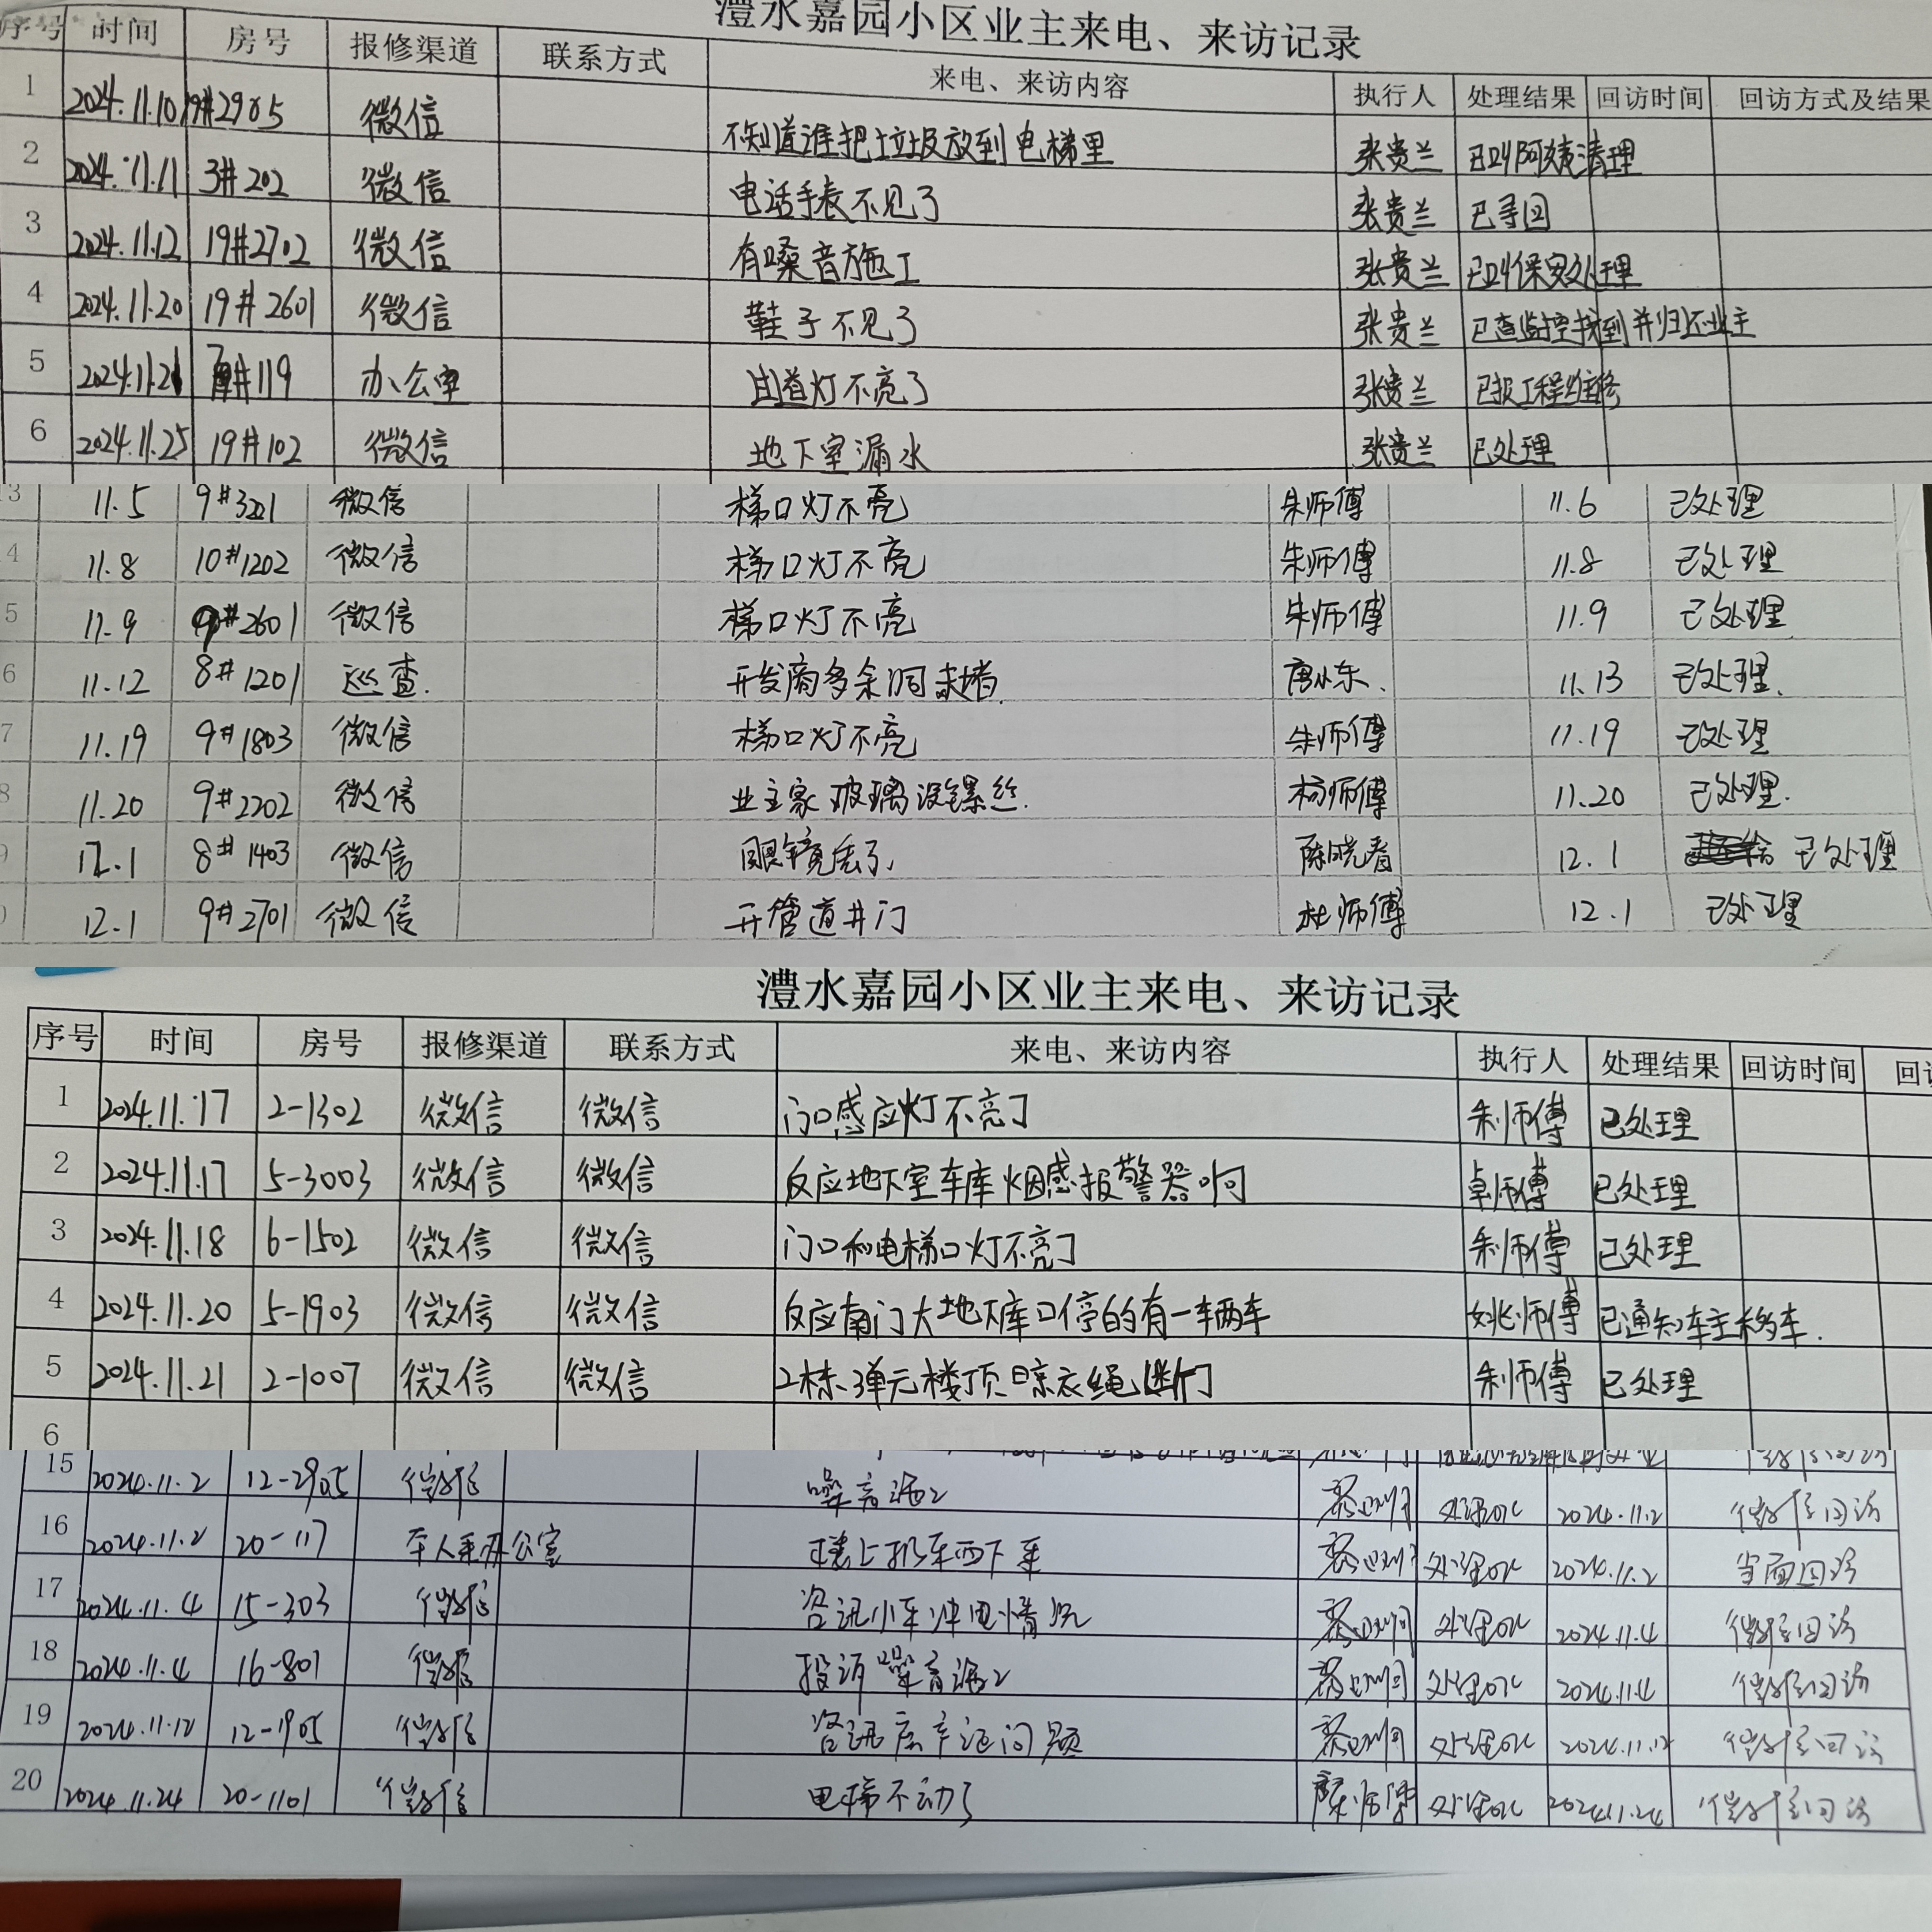 澧水嘉园小区业主来电、来访记录
序号 时间 房号 报修渠道 联系方式 来电、来访内容 执行人 处理结果 回访时间 回访方式及结果
1 2024.11.10 19#2905 微信 不知道谁把垃圾放到电梯里 张贵兰 已叫阿姨清理
2 2024.11.11 3#202 微信 电话手表不见了 张贵兰 已寻回
3 2024.11.12 19#2702 微信 有噪音施工 张贵兰 已叫保安处理
4 2024.11.20 19#2601 微信 鞋子不见了 张贵兰 已查监控找到并归还业主
5 2024.11.21 #119 办公室 过道灯不亮了 张贵兰 已报工程维修
6 2024.11.25 19#102 微信 地下室漏水 张贵兰 已处理
3 11.5 9#3201 微信 梯口灯不亮 朱师傅 11.6 已处理
4 11.8 10#1202 微信 梯口灯不亮 朱师傅 11.8 已处理
5 11.9 9#2601 微信 梯口灯不亮 朱师傅 11.9 已处理
6 11.12 8#1201 巡查. 开发商多余洞封堵 唐小东. 11.13 已处理.
7 11.19 9#1803 微信 梯口灯不亮 朱师傅 11.19 已处理
8 11.20 9#2202 微信 业主家玻璃没镙丝. 杨师傅 11.20 已处理.
9 12.1 8#1403 微信 眼镜丢了, 陈晓春 12.1 已处理
12.1 9#2701 微信 开管道井门 杜师傅 12.1 已处理
澧水嘉园小区业主来电、来访记录
序号 时间 房号 报修渠道 联系方式 来电、来访内容 执行人 处理结果 回访时间 回
1 2024.11.17 2-1302 微信 微信 门口感应灯不亮了 朱师傅 已处理
2 2024.11.17 5-3003 微信 微信 反应地下室车库烟感报警器响 卓师傅 已处理
3 2024.11.18 6-1502 微信 微信 门口和电梯口灯不亮了 朱师傅 已处理
4 2024.11.20 5-1903 微信 微信 反应南门大地下库口停的有一车辆车 姚师傅 已通知车主移车.
5 2024.11.21 2-1007 微信 微信 2栋3单元楼顶晾衣绳断了 朱师傅 已处理
6
15 2024.11.2 12-2905 微信 噪音源2 处理OK 2024.11.2 微信回访
16 2024.11.2 20-117 本人来办公室 楼上扔东西下来 处理OK 2024.11.2 当面回访
17 2024.11.4 15-303 微信 咨讯小车冲电情况 处理OK 2024.11.4 微信回访
18 2024.11.4 16-801 微信 投诉噪音源2 处理OK 2024.11.4 微信回访
19 2024.11.12 12-1905 微信 咨讯房产证问题 处理OK 2024.11.12 微信回访
20 2024.11.24 20-1101 微信 电梯不动了 师傅 处理OK 2024.11.24 微信回访